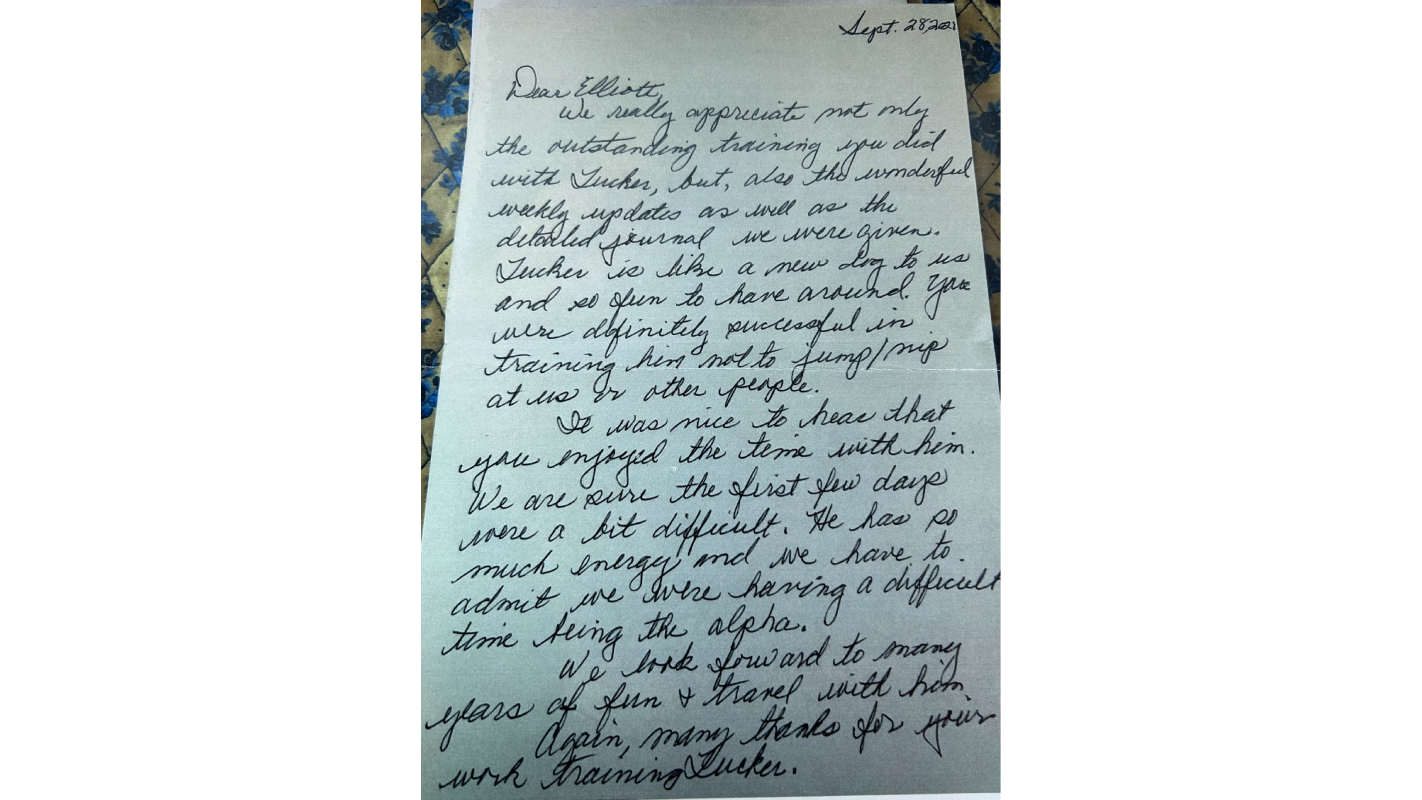 Sept. 28, 2021
Dear Elliott,
We really appreciate not only
the outstanding training you did
with Tucker, but, also the wonderful
weekly updates as well as the
detailed journal we were given.
Tucker is like a new dog to us
and so fun to have around. You
were definitely successful in
training him not to jump/nip
at us or other people.
It was nice to hear that
you enjoyed the time with him.
We are sure the first few days
were a bit difficult. He has so
much energy and we have to
admit we were having a difficult
time being the alpha.
We look forward to many
years of fun & travel with him
Again, many thanks for your
work training Tucker.